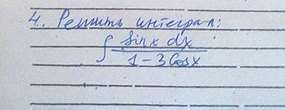 4. Решить интеграл:
∫ sinx dx / 1-3Cosx